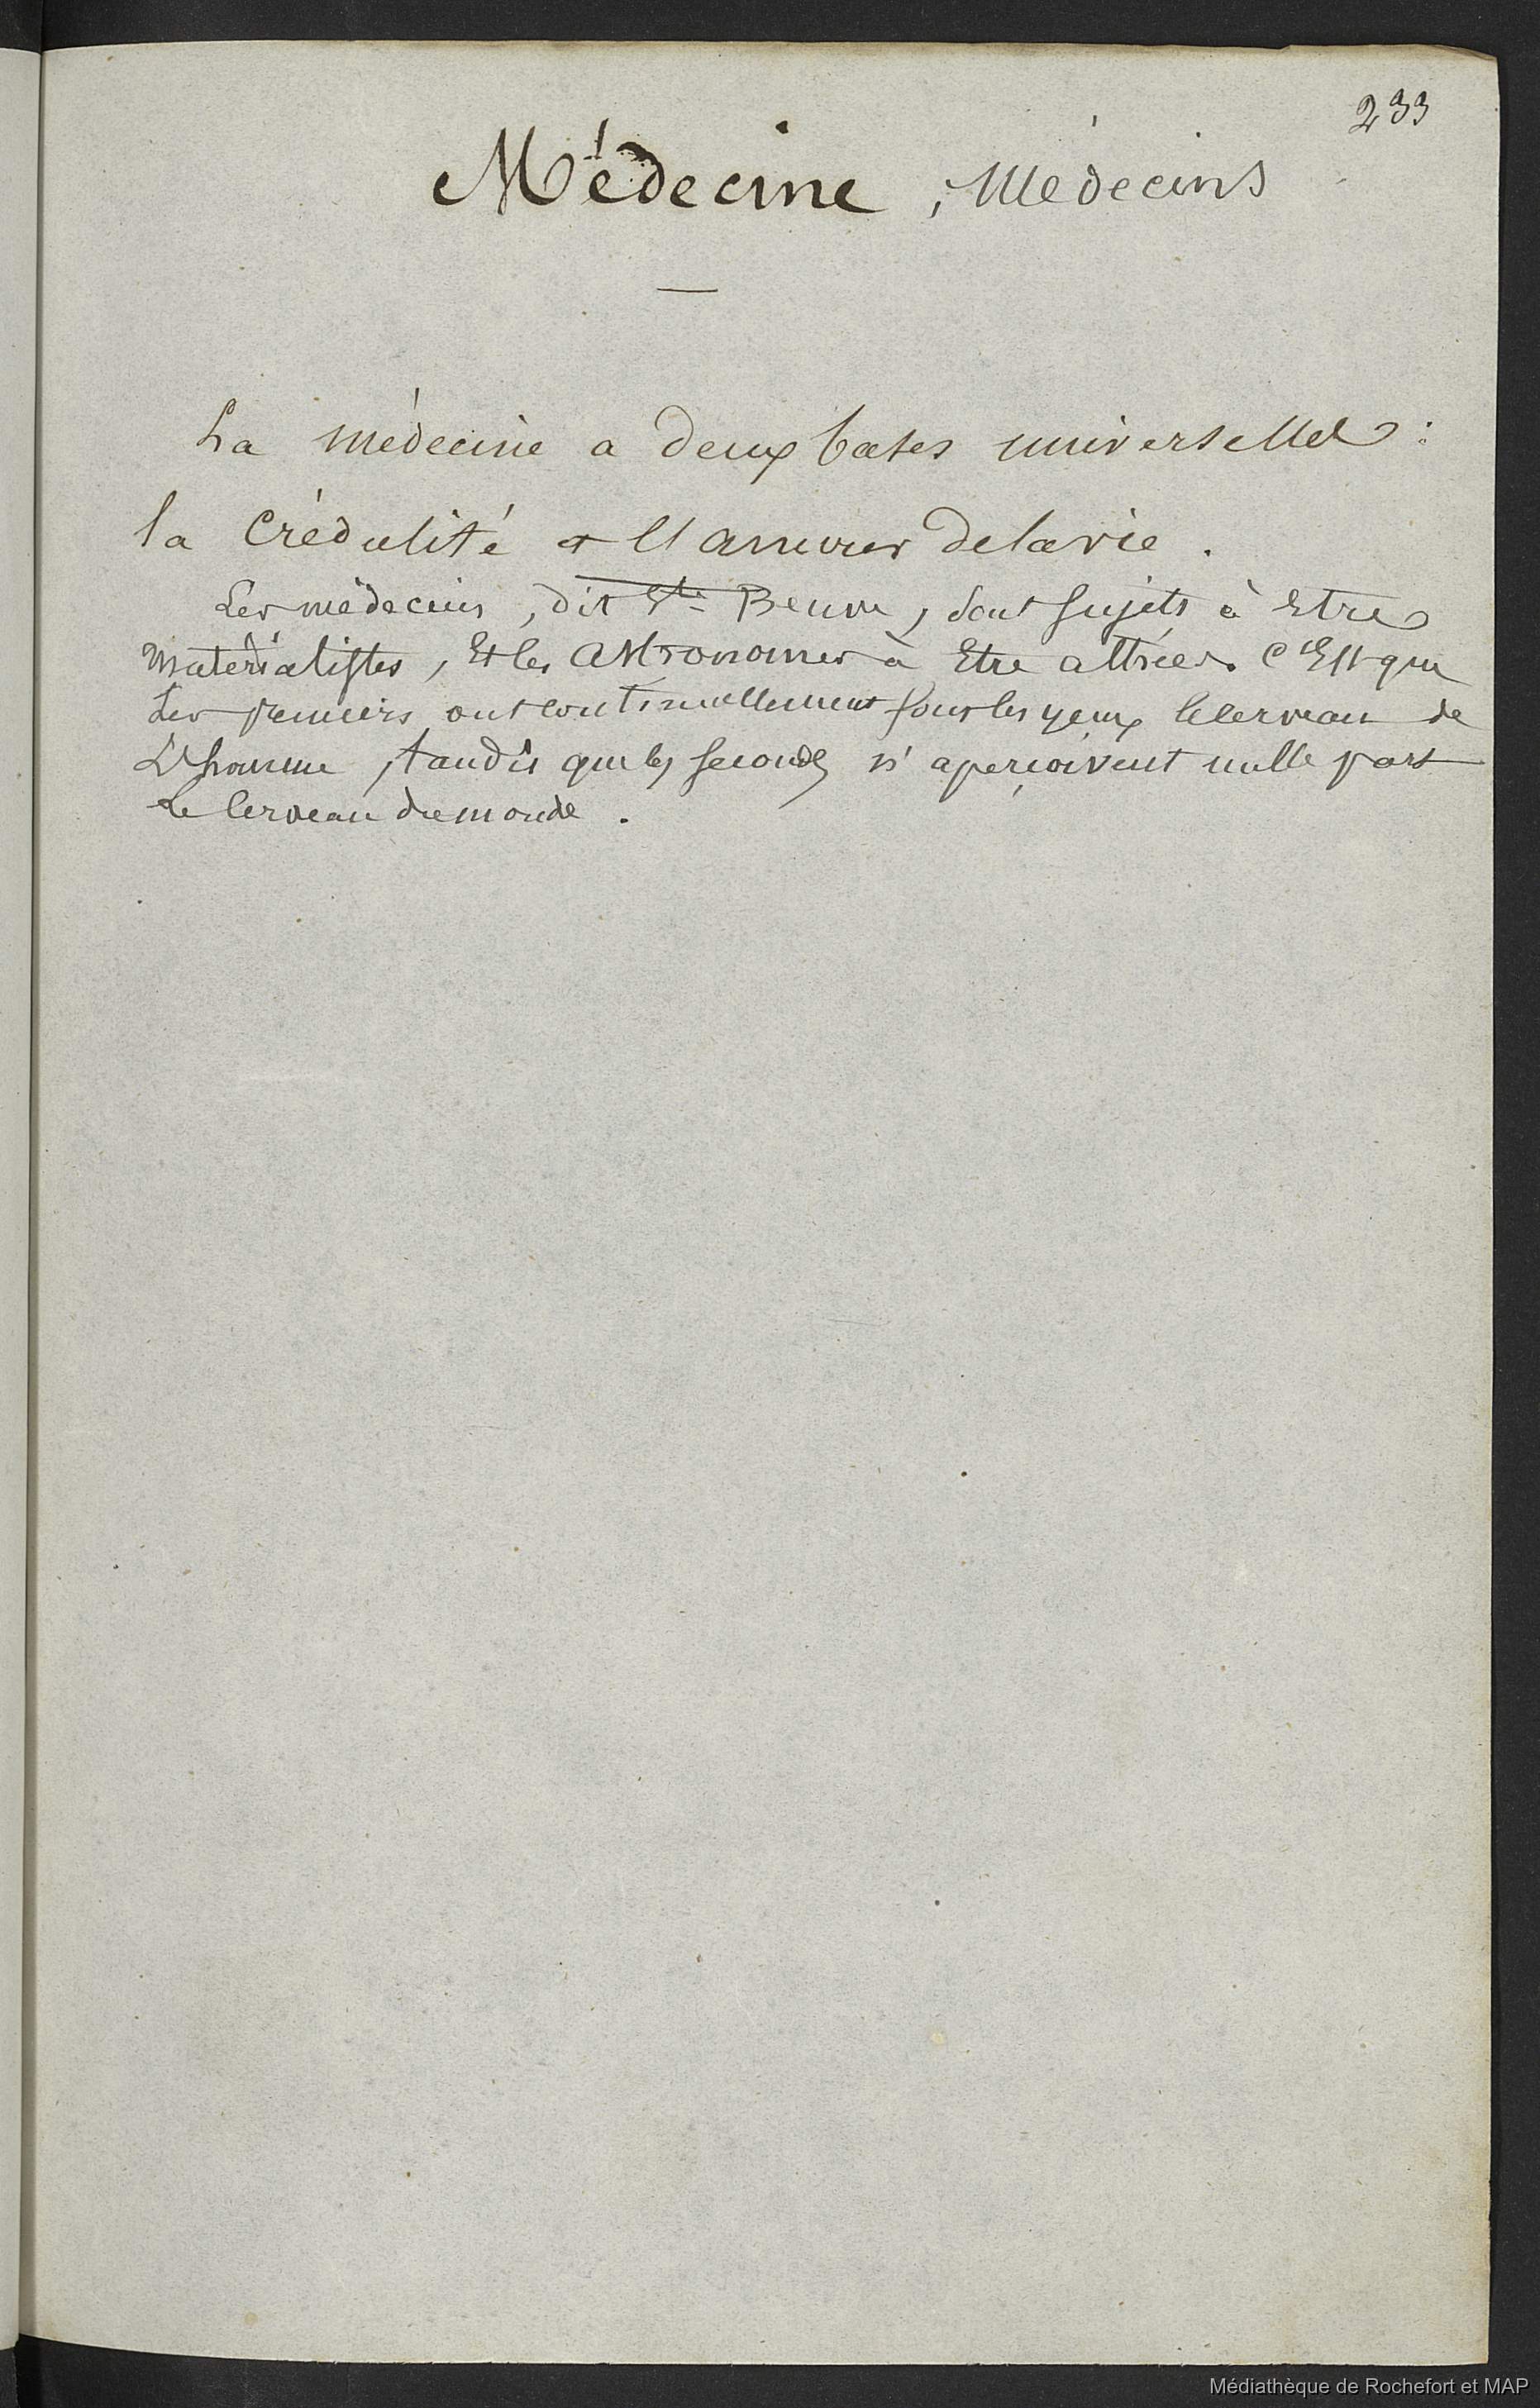 233
Médecine, Médecins
La médecine a deux bases universelles :
la Crédulité et l'amour de la vie.
Les médecins, dit Ste Beuve, sont sujets à Etre
materialistes, Et les astronomes à Etre athées. C'Est que
Les premiers ont continuellement sous les yeux le cerveau de
L'homme, tandis que les seconds n'aperçoivent nulle part
Le cerveau du monde.
Médiathèque de Rochefort et MAP